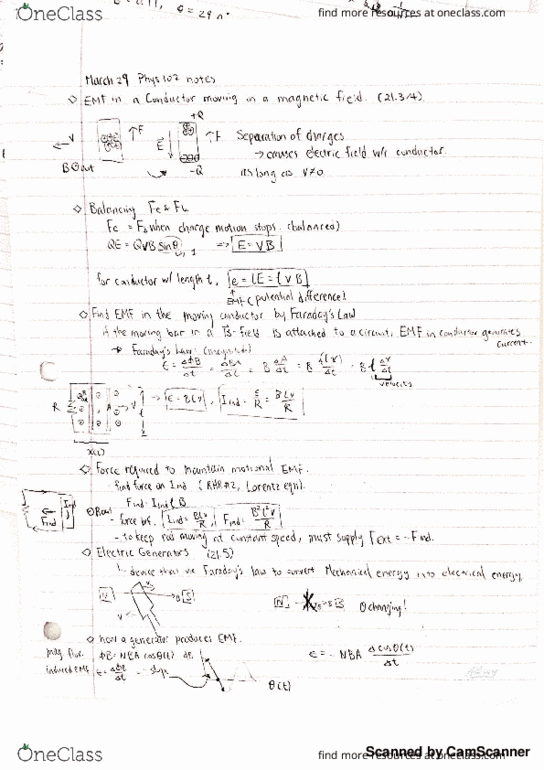 OneClass
find more resources at oneclass.com
March 29 Phys 102 notes
◇ EMF in a Conductor moving in a magnetic field. (21.3/4)
+Q
V ↑F E ↑F Separation of charges
→ causes electric field w/i conductor.
B⊙out -Q as long as V≠0
◇ Balancing Fe &
when charge motion stops (balanced)
QE = QVB sinθ, 1 ⇒ E = VB
for conductor w/ length l, e = lE = lVB
EMF (potential difference)
◇ Find EMF in the moving conductor by Faraday's Law
if the moving bar in a B-field is attached to a circuit, EMF in conductor generates
current.
→ Faraday's Law:
velocity
R V → ε = Blv, Ind = ε/R = Blv/R
x(t)
◇ Force required to maintain motional EMF.
- find force on Ind (RHR #2, Lorentz eqn).
Find = Ind l B
⊙Bout - force Ind = Blv/R, Find = B²l²v/R
- to keep rod moving at constant speed, must supply Fext = -Find.
◇ Electric Generators (21.5)
device that use Faraday's law to convert Mechanical energy into electrical energy
N B S N θ changing!
◇ how a generator produces EMF.
mag flux ΦB = NBA cosθ(t) ε = - NBA Δcosθ(t)/Δt
induced EMF slope
θ(t)
OneClass
find more resources at oneclass.com
Scanned by CamScanner